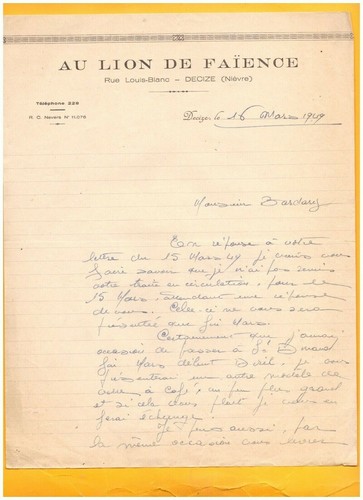 AU LION DE FAÏENCE
Rue Louis-Blanc — DECIZE (Nièvre)
Téléphone 226
R. C. Nevers N° 11.076
Decize, le 16 Mars 1949
Monsieur
En réponse à votre
lettre du 15 Mars 49 je viens vous
faire savoir que je n'ai pas remis
votre traite en circulation, pour le
15 Mars, attendant une réponse
de vous. Celle-ci ne vous sera
présentée que fin Mars.
Certainement que j'aurai
occasion de passer à St
fin Mars début Avril, je vous
présenterai un autre modèle de
à café, un peu plus grand
et si cela vous plait je vous en
ferai échange.
Je pense aussi, par
la même occasion vous livrer